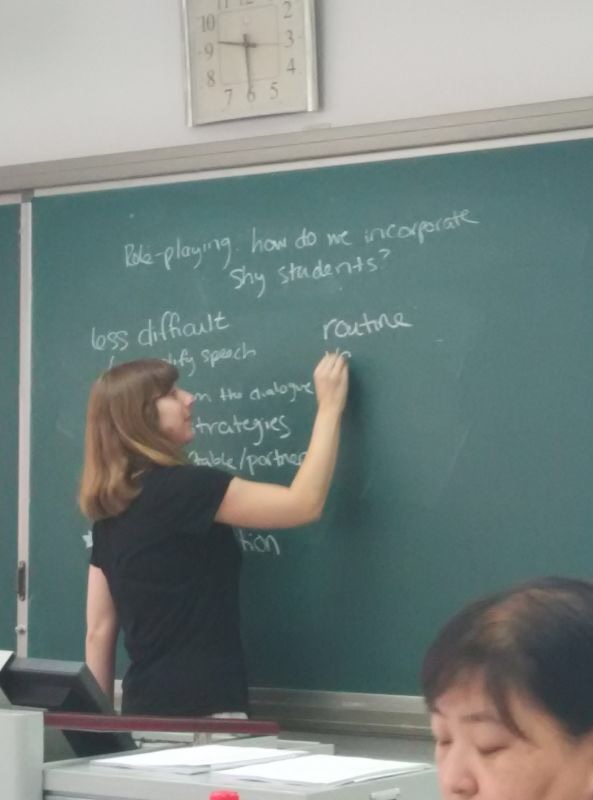 10 2
9 3
8 4
7 6 5
Role-playing: how do we incorporate
shy students?
less difficult
speech
the dialogue
strategies
table/partner
routine